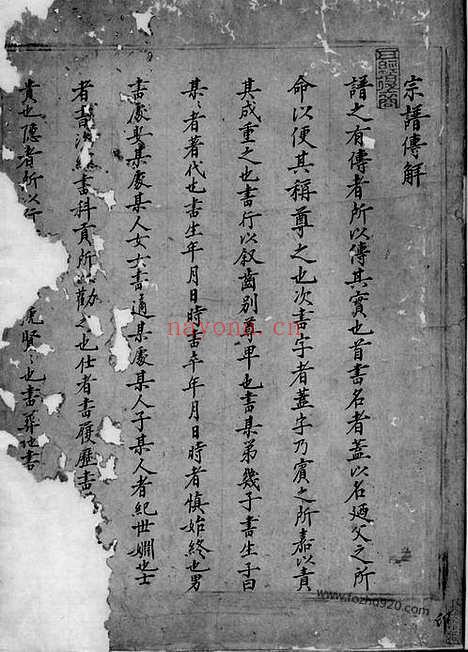 宗譜傳解
譜之有傳者所以傳其實也首書名者蓋以名迺父之所
命以便其稱尊之也次書字者蓋字乃賓之所嘉以責
其成重之也書行以叙齒別尊卑也書某弟幾子書生子曰
某〻者著代也書生年月日時書卒年月日時者慎始終也男
書娶某處某人女女書適某處某人子某人者紀世婣也士
者書科貢所以勸之也仕者書履歷書
貴也隱者所以行賢〻也書葬地書
nayona.cn
www.fozhu920.com